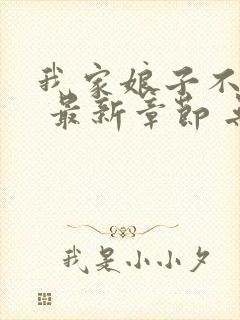 我家娘子不
最新章節
我是小小夕